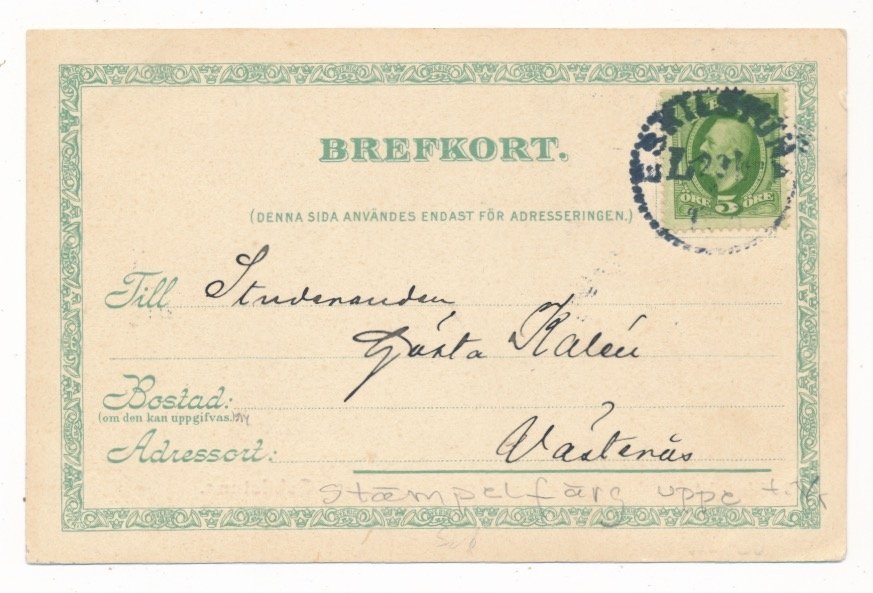 BREFKORT.
(DENNA SIDA ANVÄNDES ENDAST FÖR ADRESSERINGEN.)
ESKILSTUNA
L 29
ÖRE 5 ÖRE
Till Studeranden
Gösta Kalén
Bostad:
(om den kan uppgifvas.)
Adressort: Västerås
stæmpelfärg uppe